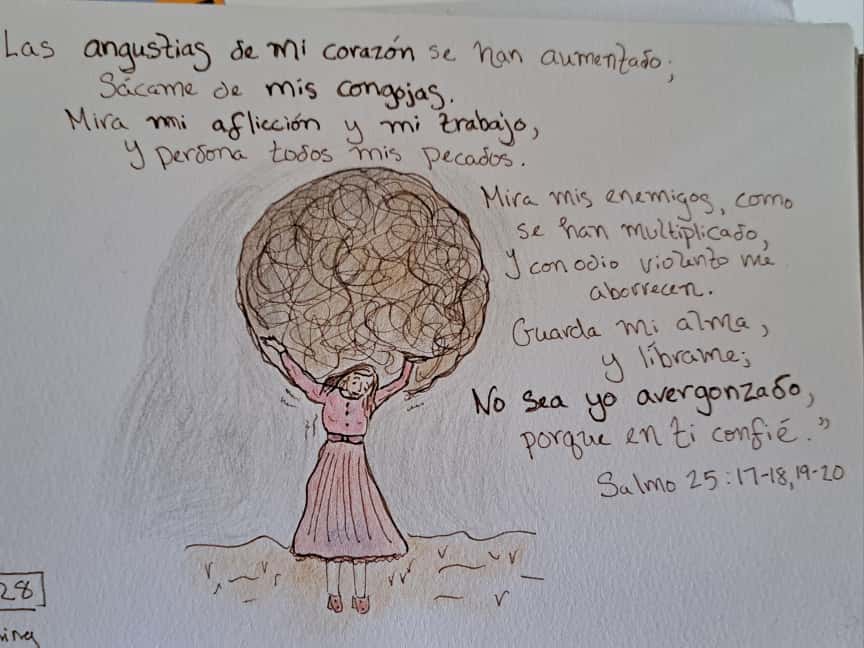 Las angustias de mi corazón se han aumentado;
Sácame de mis congojas.
Mira mi aflicción y mi trabajo,
y perdona todos mis pecados.
Mira mis enemigos, como
se han multiplicado,
y con odio violento me
aborrecen.
Guarda mi alma,
y líbrame;
No sea yo avergonzado,
porque en ti confié."
Salmo 25:17-18, 19-20
28